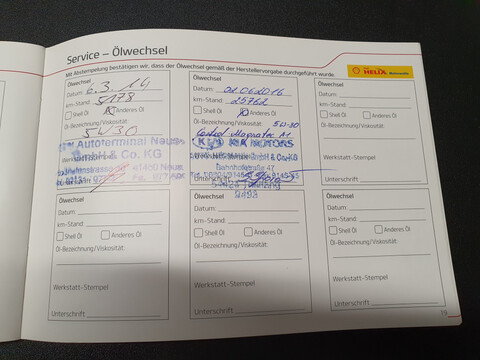 Service – Ölwechsel
Mit Abstempelung bestätigen wir, dass der Ölwechsel gemäß der Herstellervorgabe durchgeführt wurde.
HELIX
Ölwechsel
Datum: 6.3.14
km-Stand: 5178
Shell Öl Anderes Öl
Öl-Bezeichnung/Viskosität:
5W30
Autoterminal Neuss
GmbH & Co. KG
Ölwechsel
Datum: 02.06.2016
km-Stand: 25762
Shell Öl Anderes Öl
Öl-Bezeichnung/Viskosität: 5W-30
Castrol Magnatec A1
KIA MOTORS
GmbH & Co.KG
Bahnhofstraße 47
Unterschrift
Ölwechsel
Datum:
km-Stand:
Shell Öl Anderes Öl
Öl-Bezeichnung/Viskosität:
Werkstatt-Stempel
Unterschrift
Ölwechsel
Datum:
km-Stand:
Shell Öl Anderes Öl
Öl-Bezeichnung/Viskosität:
Werkstatt-Stempel
Unterschrift
Ölwechsel
Datum:
km-Stand:
Shell Öl Anderes Öl
Öl-Bezeichnung/Viskosität:
Werkstatt-Stempel
Unterschrift
Ölwechsel
Datum:
km-Stand:
Shell Öl Anderes Öl
Öl-Bezeichnung/Viskosität:
Werkstatt-Stempel
Unterschrift
19